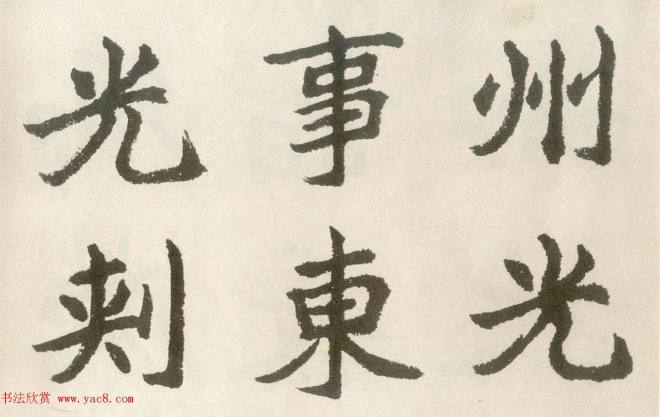 州光
事東
光刾
书法欣赏 www.yac8.com